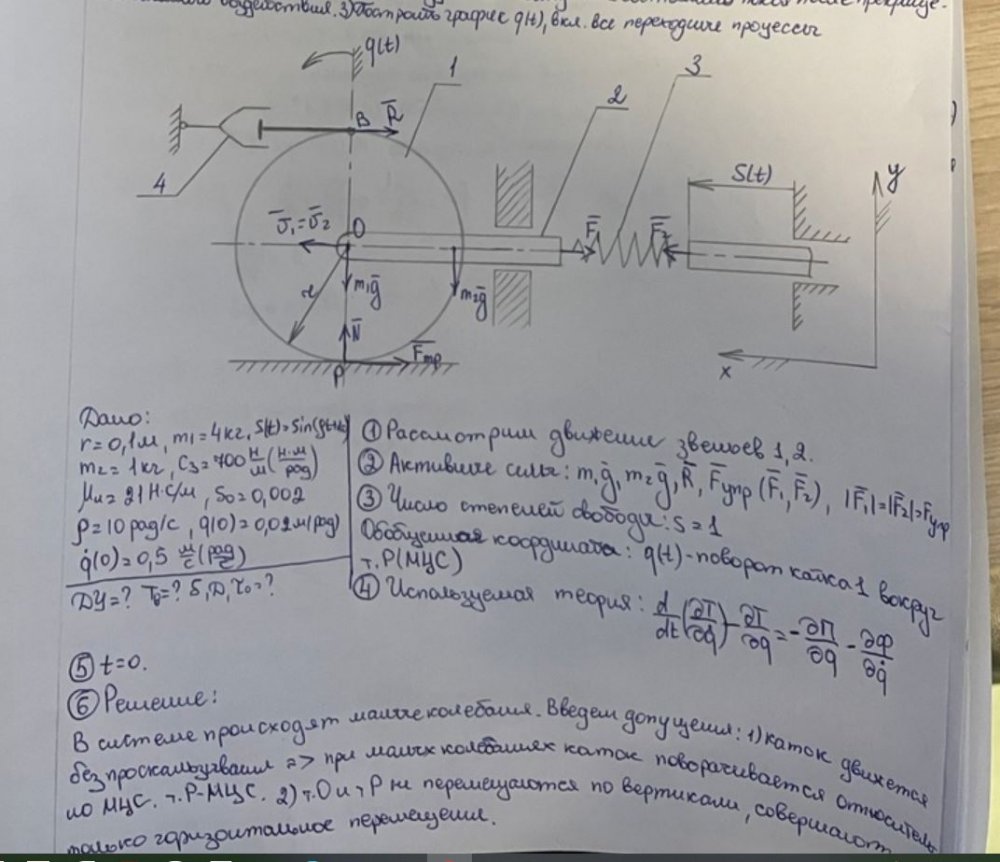 воздействия. 3) Построить график q(t), вкл. все переходные процессы
q(t)
1
2
3
B
R̄
4
S(t)
y
ῡ₁=ῡ₂
O
F̄₁
F̄₂
m₁ḡ
m₂ḡ
r
N̄
F̄тр
P
x
Дано:
r=0,1м, m₁=4кг, S(t)=
m₂=1кг, C₃=700 Н/м (Н·м/рад)
21 Н·с/м, S₀=0,002
p=10 рад/с, q(0)=0,02м(рад)
q̇(0)=0,5 м/с (рад/с)
ДУ=? T₀=? δ, D, τ₀=?
① Рассмотрим движение звеньев 1, 2.
② Активные силы: m₁ḡ, m₂ḡ, R̄, F̄упр (F̄₁, F̄₂), |F̄₁|=|F̄₂|=Fупр
③ Число степеней свободы: s=1
Обобщенная координата: q(t)-поворот катка 1 вокруг
т.P(МЦС)
④ Используемая теория: d/dt(∂T/∂q̇)-∂T/∂q=-∂П/∂q-∂Ф/∂q̇
⑤ t=0.
⑥ Решение:
В системе происходят малые колебания. Введем допущения: 1) каток движется
без проскальзывания => при малых колебаниях каток поворачивается относитель
но МЦС. т.P-МЦС. 2) т.O и т.P не перемещаются по вертикали, совершают
только горизонтальное перемещения.